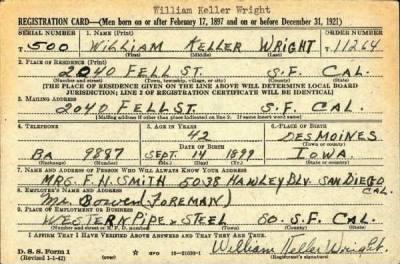 William Keller Wright
REGISTRATION CARD—(Men born on or after February 17, 1897 and on or before December 31, 1921)
SERIAL NUMBER 1. NAME (Print) ORDER NUMBER
T 500 WILLIAM KELLER WRIGHT 11264
(First) (Middle) (Last)
2. PLACE OF RESIDENCE (Print)
2040 FELL ST. S.F. CAL.
(Number and street) (Town, township, village, or city) (County) (State)
[THE PLACE OF RESIDENCE GIVEN ON THE LINE ABOVE WILL DETERMINE LOCAL BOARD
JURISDICTION; LINE 2 OF REGISTRATION CERTIFICATE WILL BE IDENTICAL]
3. MAILING ADDRESS
2040 FELL ST. S.F. CAL.
[Mailing address if other than place indicated on line 2. If same insert word same]
4. TELEPHONE 5. AGE IN YEARS 6. PLACE OF BIRTH
42 DES MOINES
DATE OF BIRTH (Town or county)
BA 9887 SEPT. 14 1899 IOWA.
(Exchange) (Number) (Mo.) (Day) (Yr.) (State or country)
7. NAME AND ADDRESS OF PERSON WHO WILL ALWAYS KNOW YOUR ADDRESS
MRS. F. H. SMITH 5038 HAWLEY BLV. SAN DIEGO CAL.
8. EMPLOYER'S NAME AND ADDRESS
Mr. Bowen (FOREMAN)
9. PLACE OF EMPLOYMENT OR BUSINESS
WESTERN PIPE & STEEL SO. S.F. CAL.
(Number and street or R. F. D. number) (Town) (County) (State)
I AFFIRM THAT I HAVE VERIFIED ABOVE ANSWERS AND THAT THEY ARE TRUE.
D. S. S. Form 1
(Revised 1-1-42) GPO 16—21630-1 William Keller Wright.
(Registrant's signature)